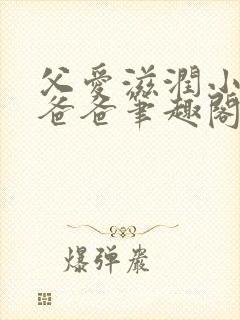 父愛滋潤小
爸爸筆趣閣
爆弹嚴